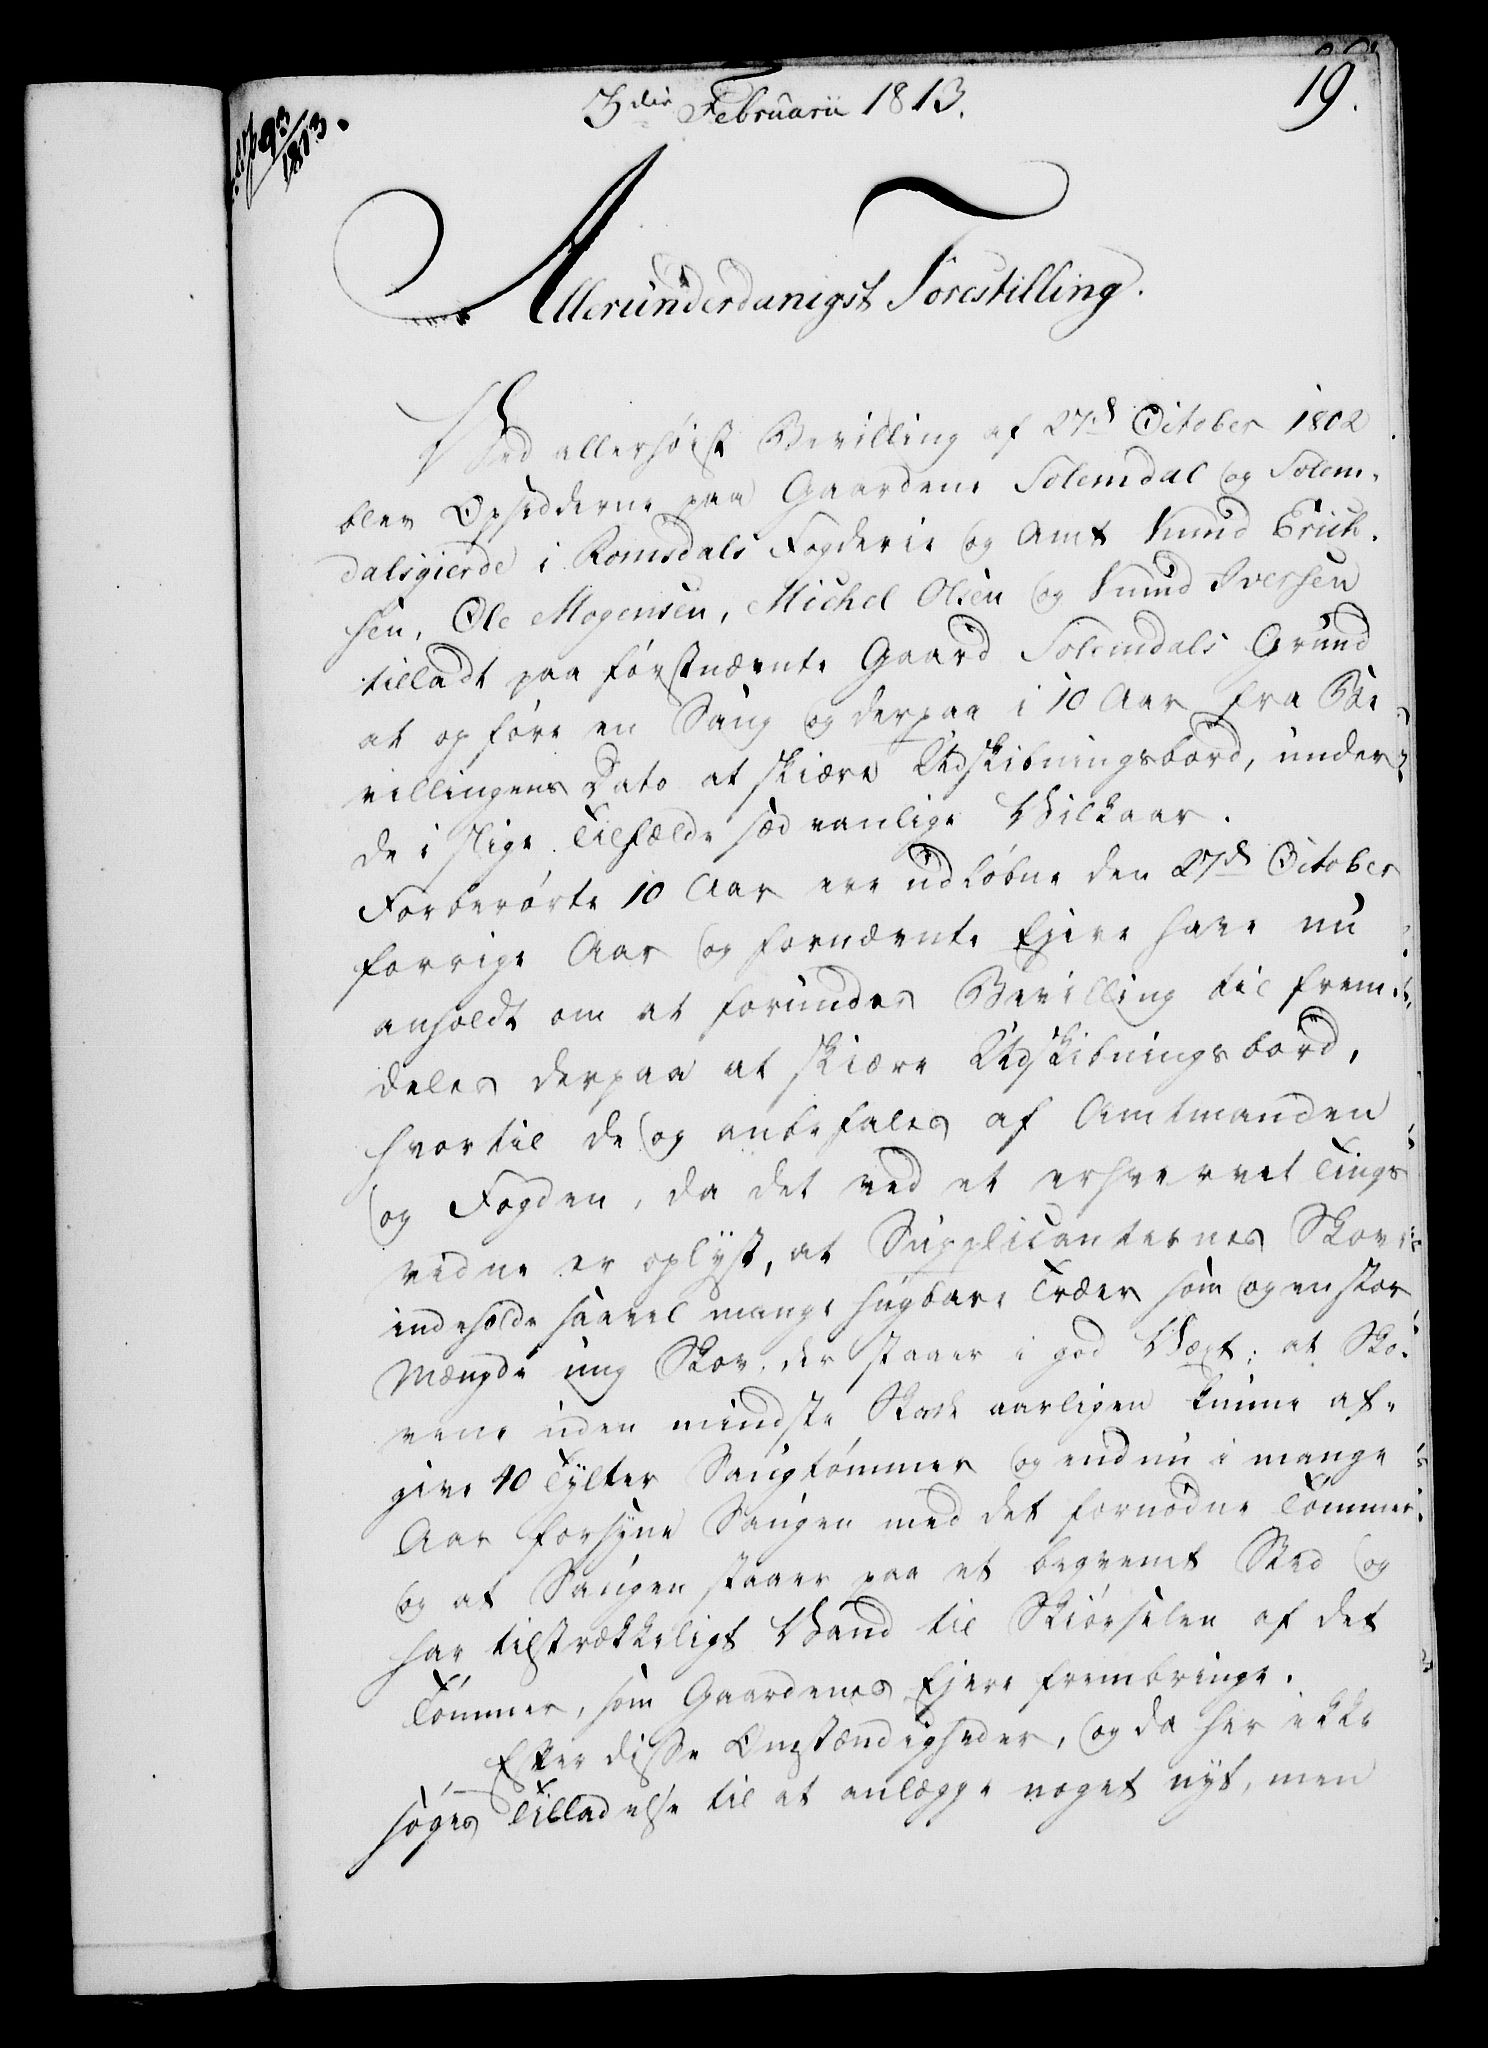 3die Februarii 1813.
19.
93/1813.
Allerunderdanigst Forestilling.
Ved allerhøist Bevilling af 27d October 1802
blev Opsidderne paa Gaardene Solemdal og Solem-
dalsgierde i Romsdals Fogderie og Amt Knud Erich-
sen, Ole Mogensen, Michel Olsen og Knud Iversen
tilladt paa førstnævnte Gaard Solemdals Grund
at opføre en Saug og derpaa i 10 Aar fra Be-
villingens Dato at skiære Udskibningsbord, under
de i slige Tilfælde sædvanlige Vilkaar.
Forberørte 10 Aar ere udløbne den 27d October
forrige Aar og fornævnte Ejere have nu
anholdt om at forundes Bevilling til frem-
deles derpaa at skiære Udskibningsbord,
hvortil de og anbefales af Amtmanden
og Fogden, da det ved et erhvervet Tings
vidne er oplyst, at Supplicanternes Skove
indeholde saavel mange hugbare Træer som og en stor
Mængde ung Skov, der staaer i god Væxt; at Sko-
vene uden mindste Skade aarligen kunne af-
give 40 Tylter Saugtømmer og endnu i mange
Aar forsyne Saugen med det fornødne Tømmer
og at Saugen staaer paa et beqvemt Sted og
har tilstrækkeligt Vand til Skiørselen af det
Tømmer, som Gaardenes Ejere frembringe.
Efter disse Omstændigheder, og da her ikke
søges Tilladelse til at anlægge noget nyt, men